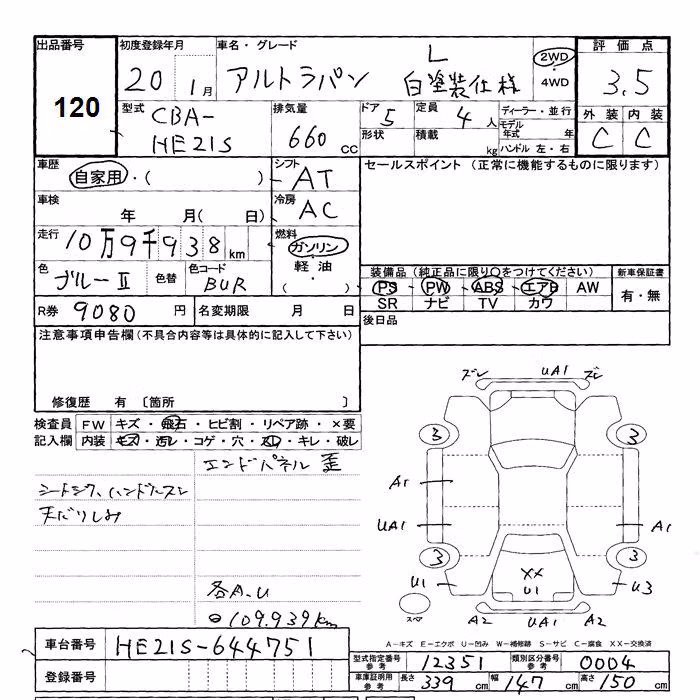 出品番号 初度登録年月 車名・グレード 評価点
120
20 1月 アルトラパン L 白塗装仕様 2WD・4WD 3.5
型式 CBA-HE21S 排気量 660 cc ドア 5 形状 定員 4人 積載 kg ディーラー・並行 モデル年式 年 ハンドル 左・右
外装 内装
C C
車歴 自家用・( ) シフト AT セールスポイント (正常に機能するものに限ります)
車検 年 月( 日) 冷房 AC
走行 10万9千938km 燃料 ガソリン・軽油・( )
色 ブルーⅡ 色替 色コード BUR
装備品 (純正品に限り○をつけてください) 新車保証書
PS PW ABS エアB AW 有・無
SR ナビ TV カワ
R券 9080円 名変期限 月 日 後日品
注意事項申告欄(不具合内容等は具体的に記入して下さい)
修復歴 有 〔箇所 〕
検査員 FW キズ・飛石・ヒビ割・リペア跡・×要
記入欄 内装 キズ・汚レ・コゲ・穴・スレ・キレ・破レ
エンドパネル 歪
シートシワ、ハンドルスレ
天だりしみ
各A.U
109.939km
ズレ UA1 ズレ
3 3
A1
UA1 A1
3 3
U1 XX U1 U3
スペア A2 UA1 A2
A-キズ E-エクボ U-凹み W-補修跡 S-サビ C-腐食 XX-交換済
車台番号 HE21S-644751
登録番号
型式指定番号 参考 12351 類別区分番号 参考 0004
車庫証明用 参考 長さ 339cm 幅 147cm 高さ 150cm